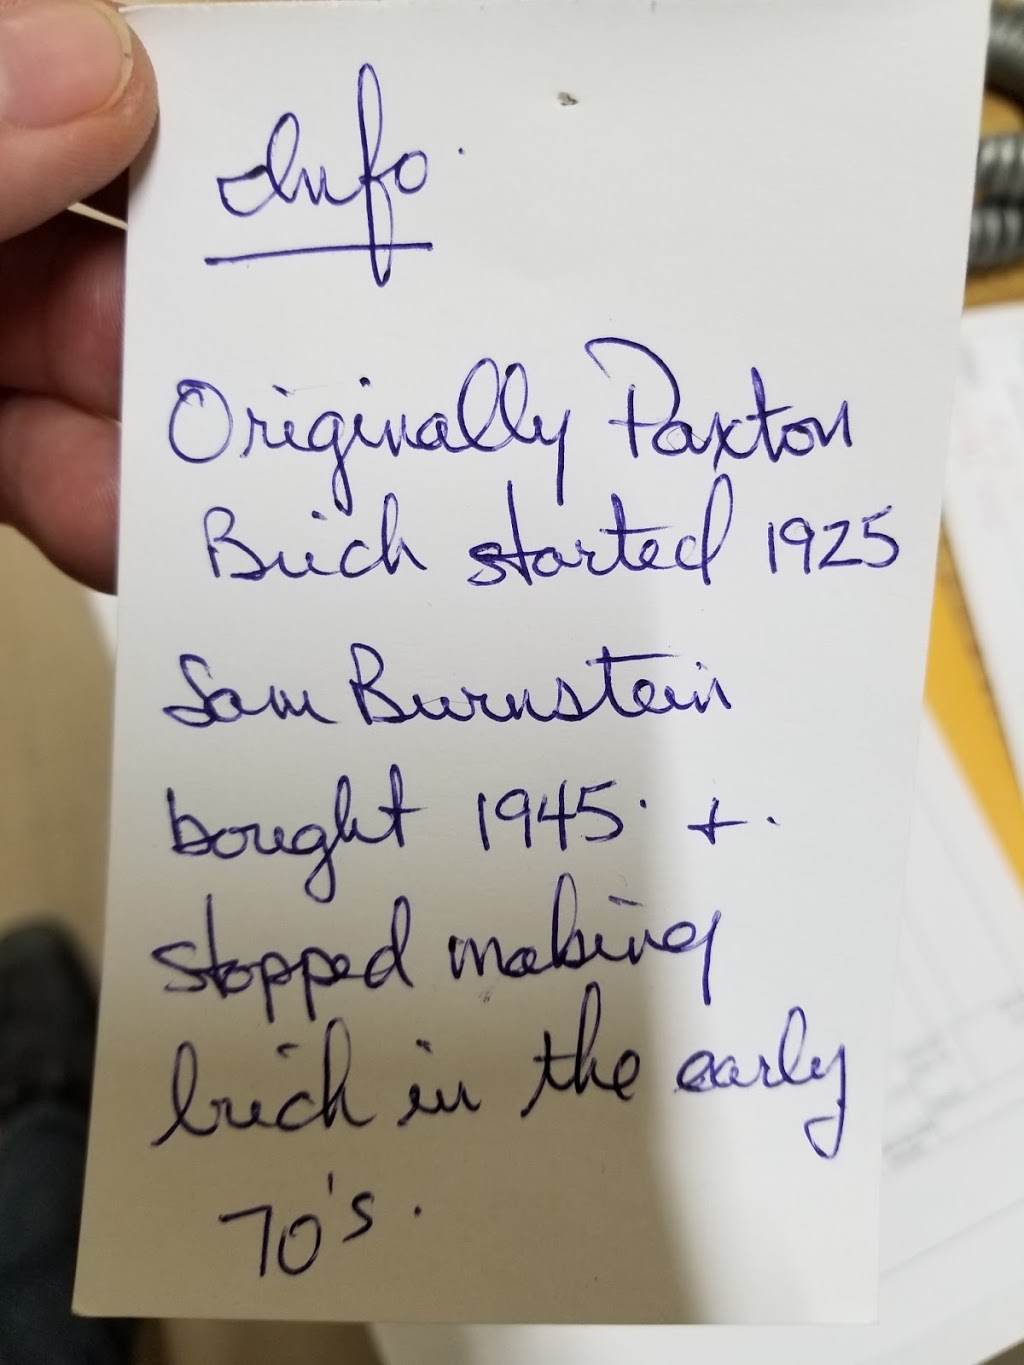 Info.
Originally Paxton
Brick started 1925
Sam Burnstein
bought 1945. +.
stopped making
brick in the early
70's.